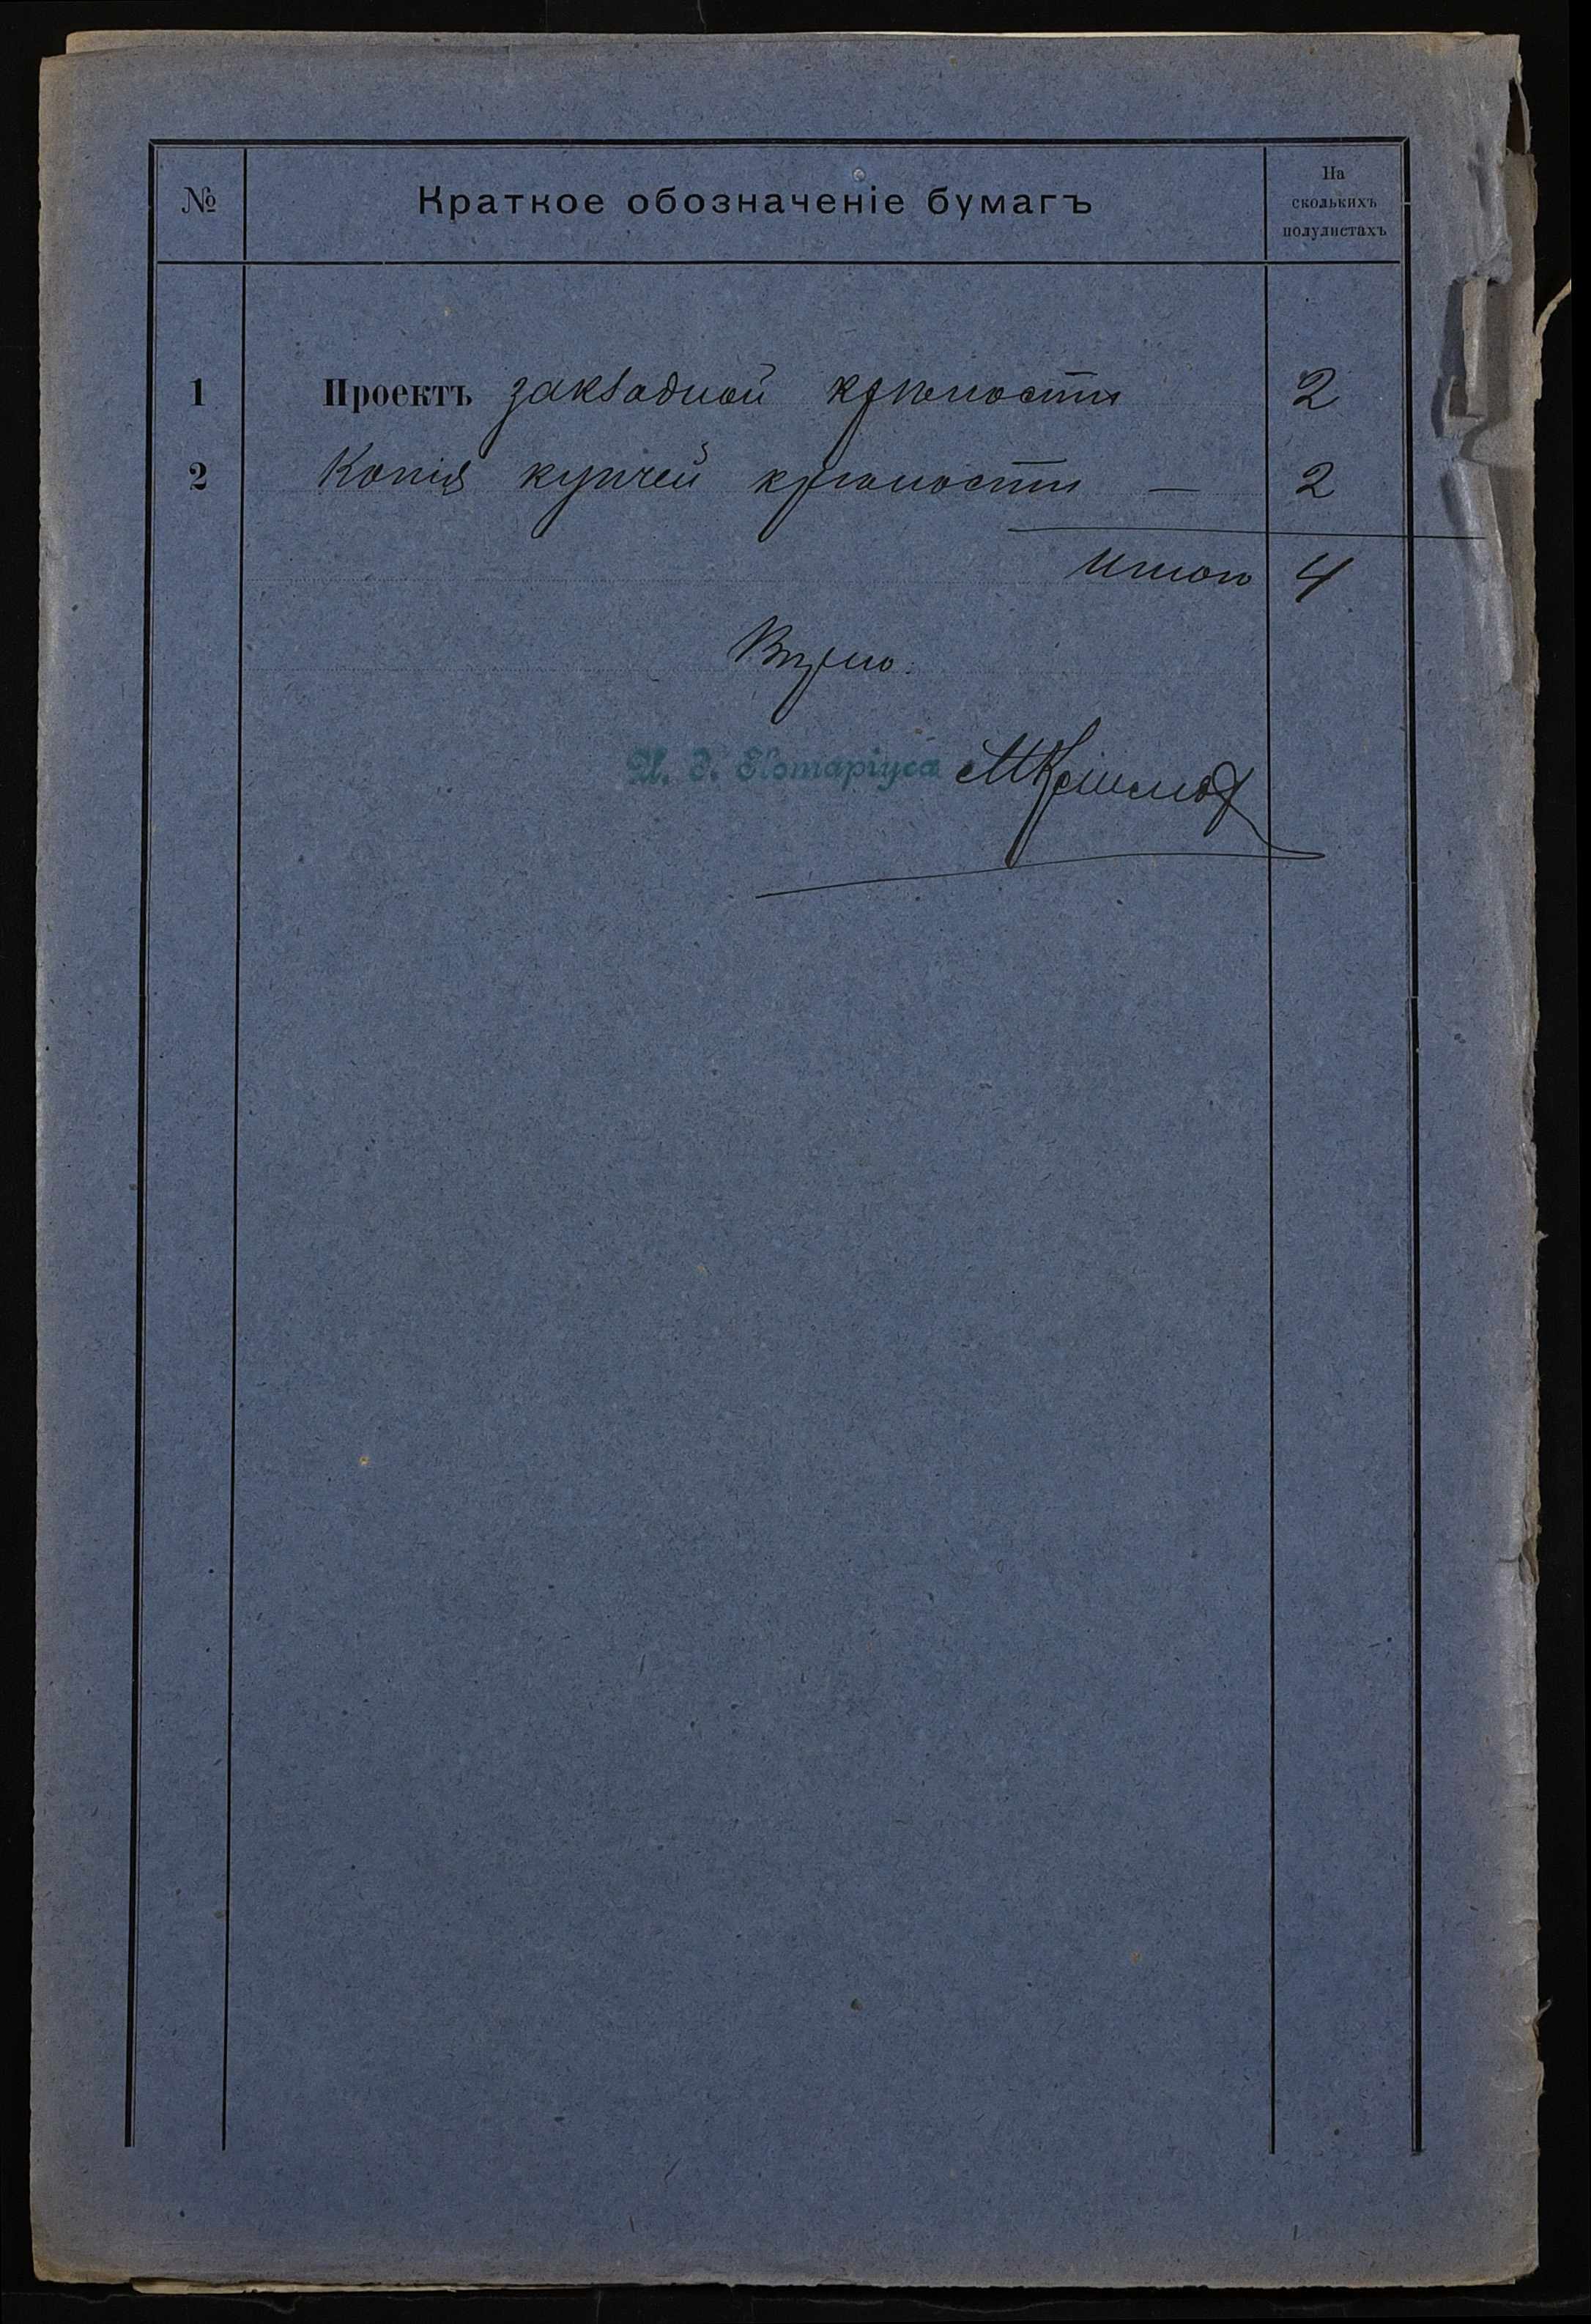 № Краткое обозначеніе бумагъ На сколькихъ полулистахъ
1 Проектъ закладной крѣпости 2
2 Копія купчей крѣпости — 2
Итого 4
Вѣрно:
И. д. Нотаріуса